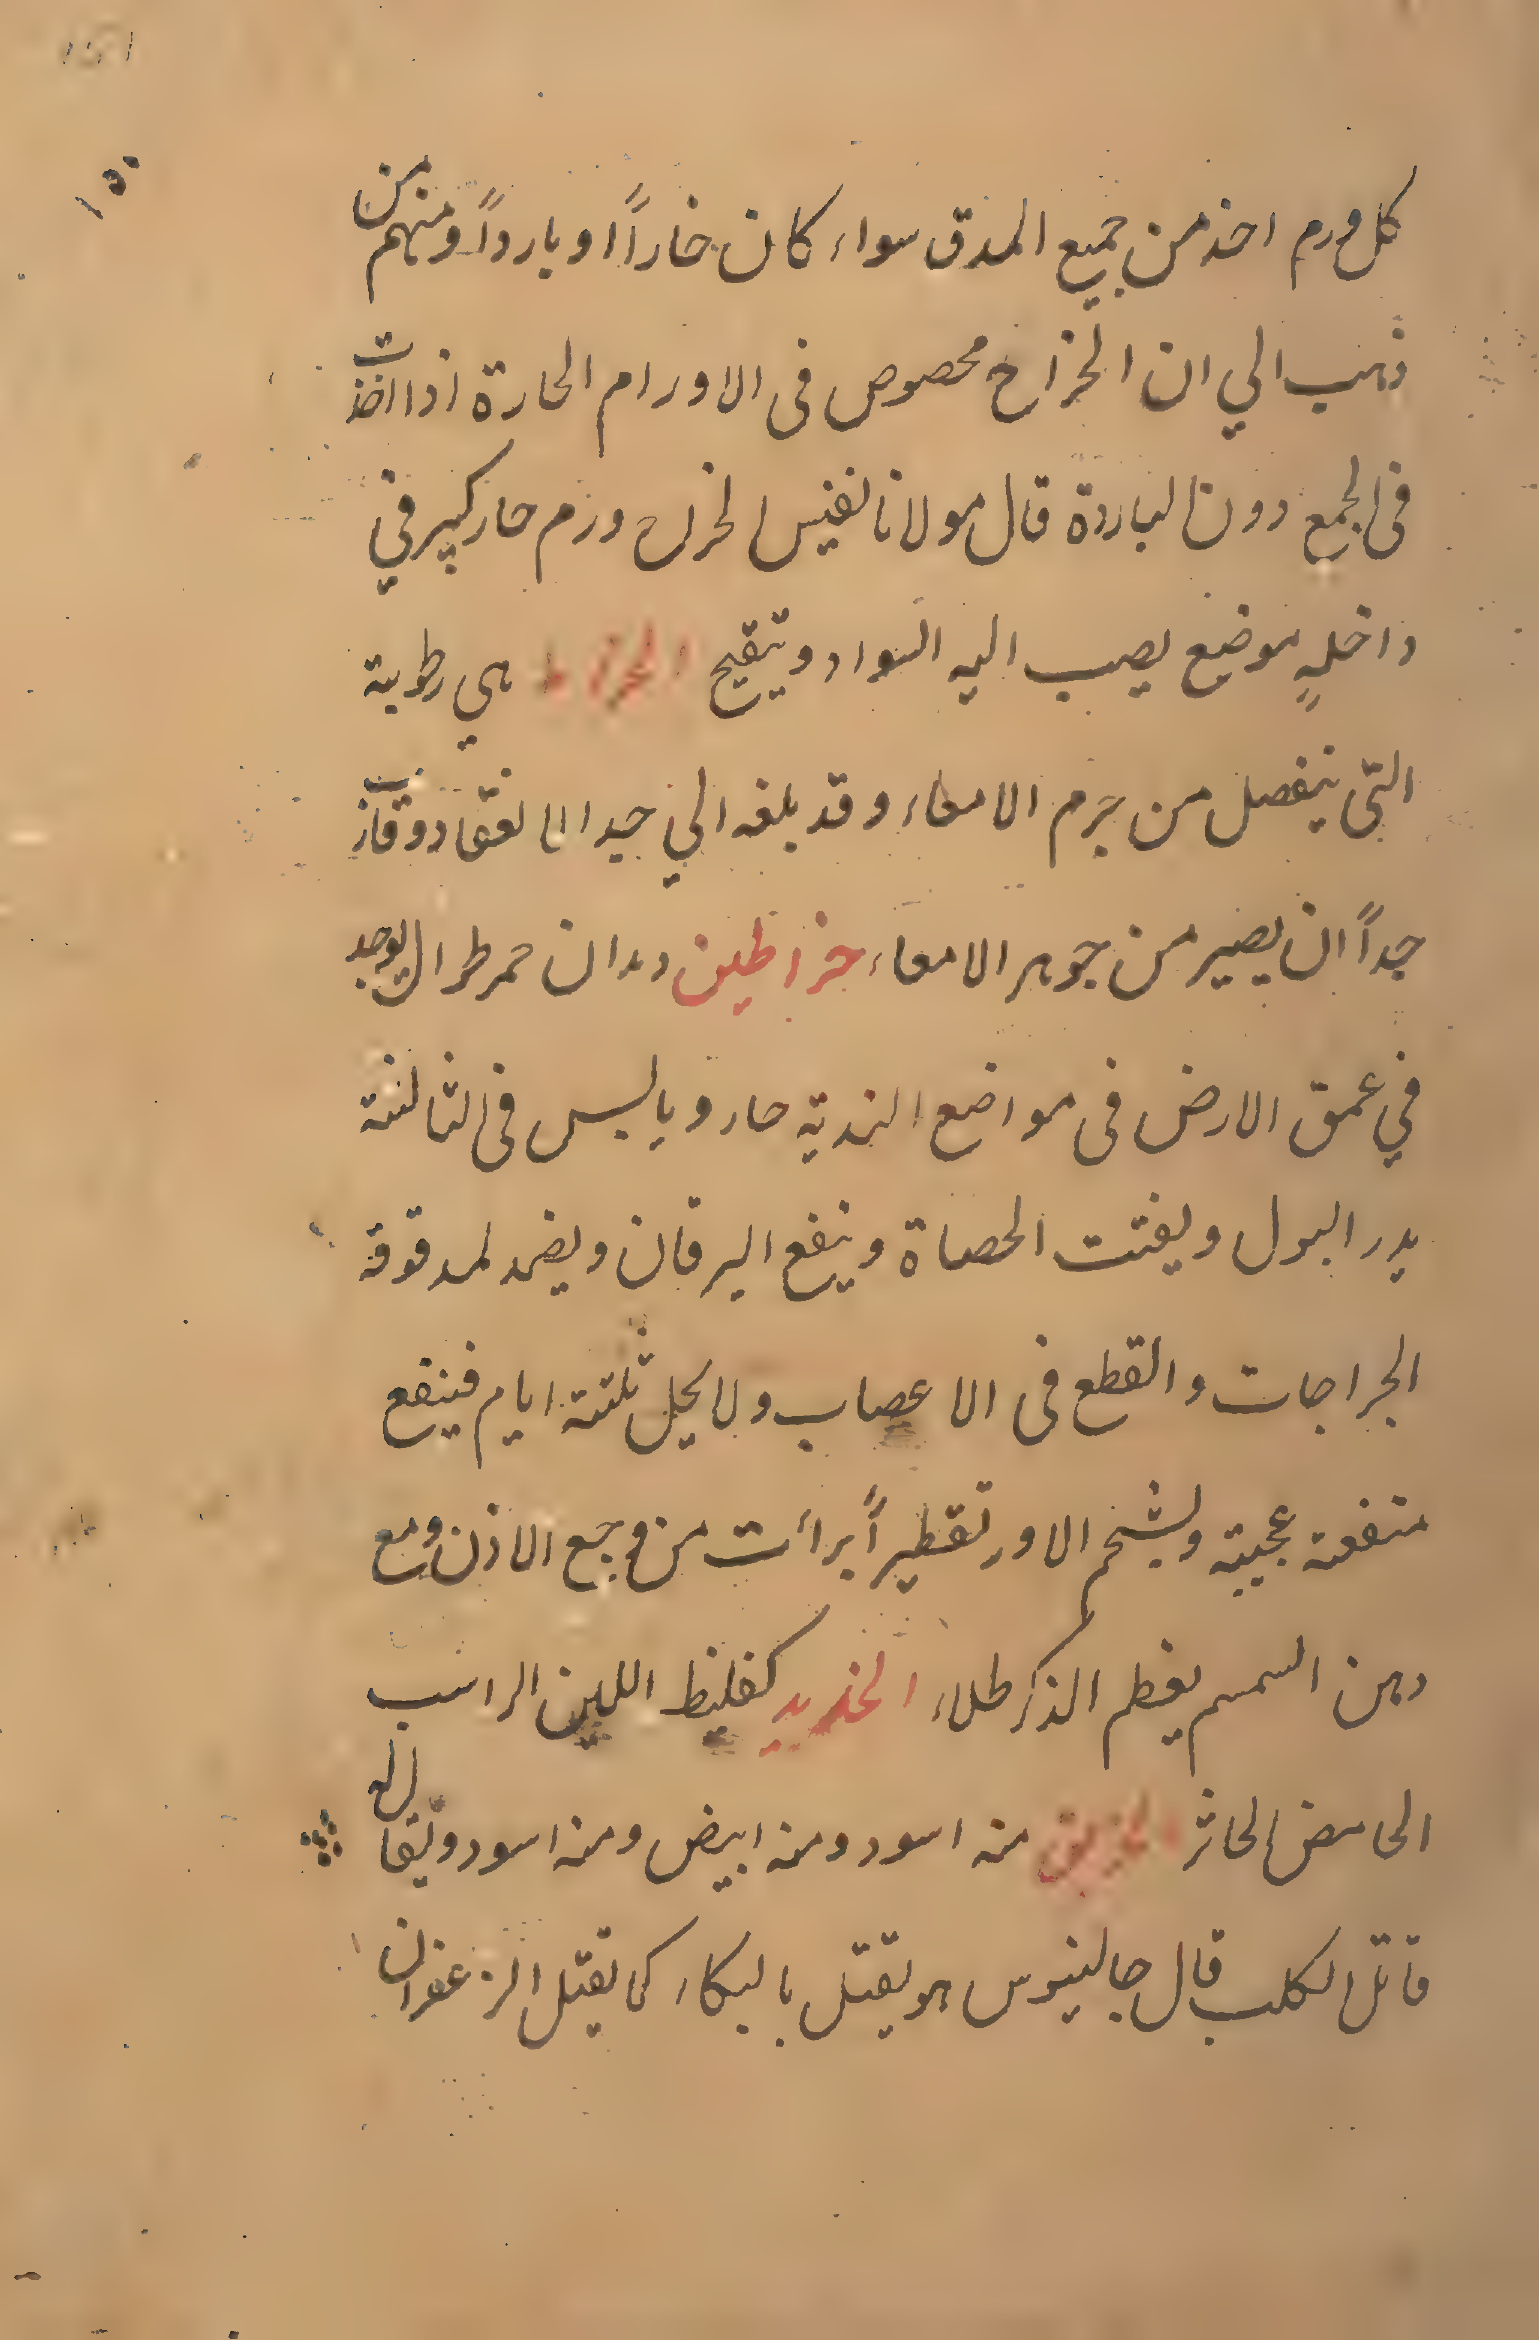 ١٥٠
كل ورم اخذ من جميع المدق سواء كان خاراً او بارداً ومنهم من
ذهب الي ان الخراج مخصوص فى الاورام الحارة اذا اخذت
فى الجمع دون الباردة قال مولانا نفيس الخراج ورم حار كبير في
داخلهٍ موضع يصب اليه المواد ويتقيح الخراطة هي رطوبة
التى ينفصل من جرم الامعاء وقد بلغه الي حد الانعقاد وقازبت
جداً ان يصير من جوهر الامعاء خراطين ديدان حمر طوال يوجد
في عمق الارض فى مواضع الندية حار ويابس فى الثالثة
يدر البول ويفتت الحصاة وينفع اليرقان ويضمد لمدقوقة
الجراحات والقطع فى الاعصاب ولا يحل ثلثة ايام فينفع
منفعة عجيبة وبشحم الاوز تقطيراً برأت من وجع الاذن ومع
دهن السمسم يعظم الذكر طلاء الخذيد كغليظ اللبن الراسب
الحامض الخاثر الخربق منه اسود ومنه ابيض ومنه اسود ويقال له
قاتل الكلب قال جالينوس هو يقتل بالبكاء كما يقتل الزعفران